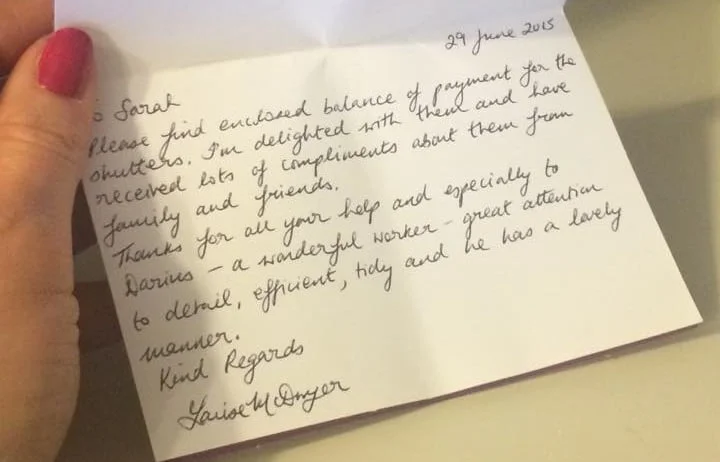 29 June 2015
To Sarah
Please find enclosed balance of payment for the
shutters. I'm delighted with them and have
received lots of compliments about them from
family and friends.
Thanks for all your help and especially to
Darius – a wonderful worker – great attention
to detail, efficient, tidy and he has a lovely
manner.
Kind Regards
Louise McDwyer